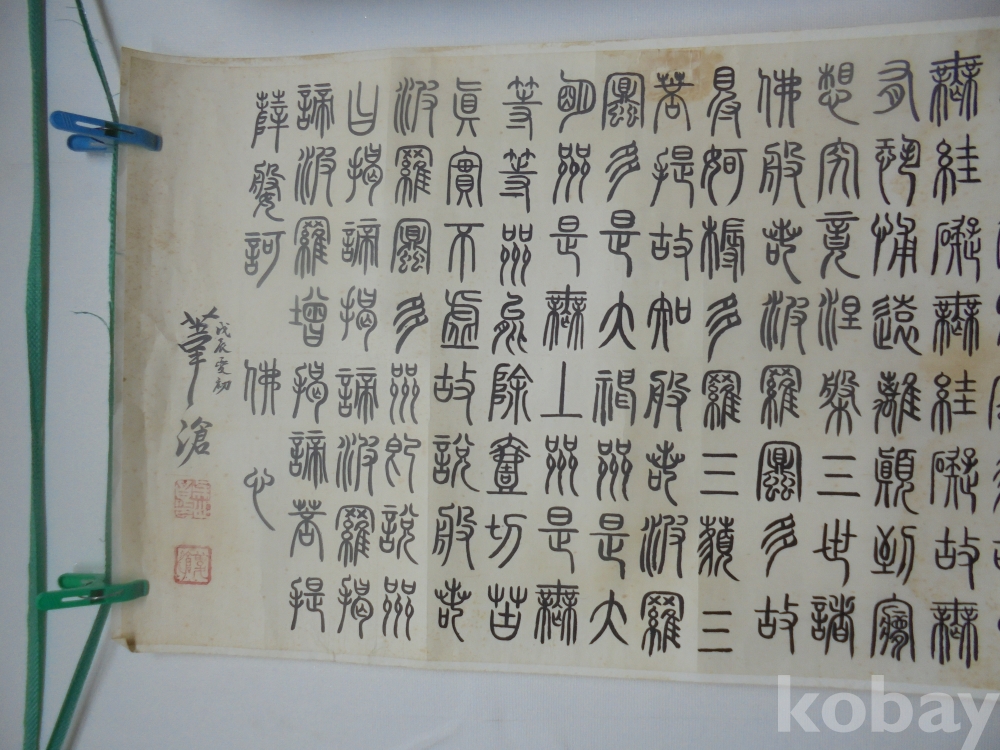 無罣礙無罣礙故無
有恐怖遠離顚倒夢
想究竟涅槃三世諸
佛般若波羅蜜多故
得阿耨多羅三藐三
菩提故知般若波羅
蜜多是大神呪是大
明呪是無上呪是無
等等呪能除壹切苦
眞實不虛故說般若
波羅蜜多呪即說呪
曰揭諦揭諦波羅揭
諦波羅增揭諦菩提
薩婆訶 佛心
戊辰夏初
滄
kobay